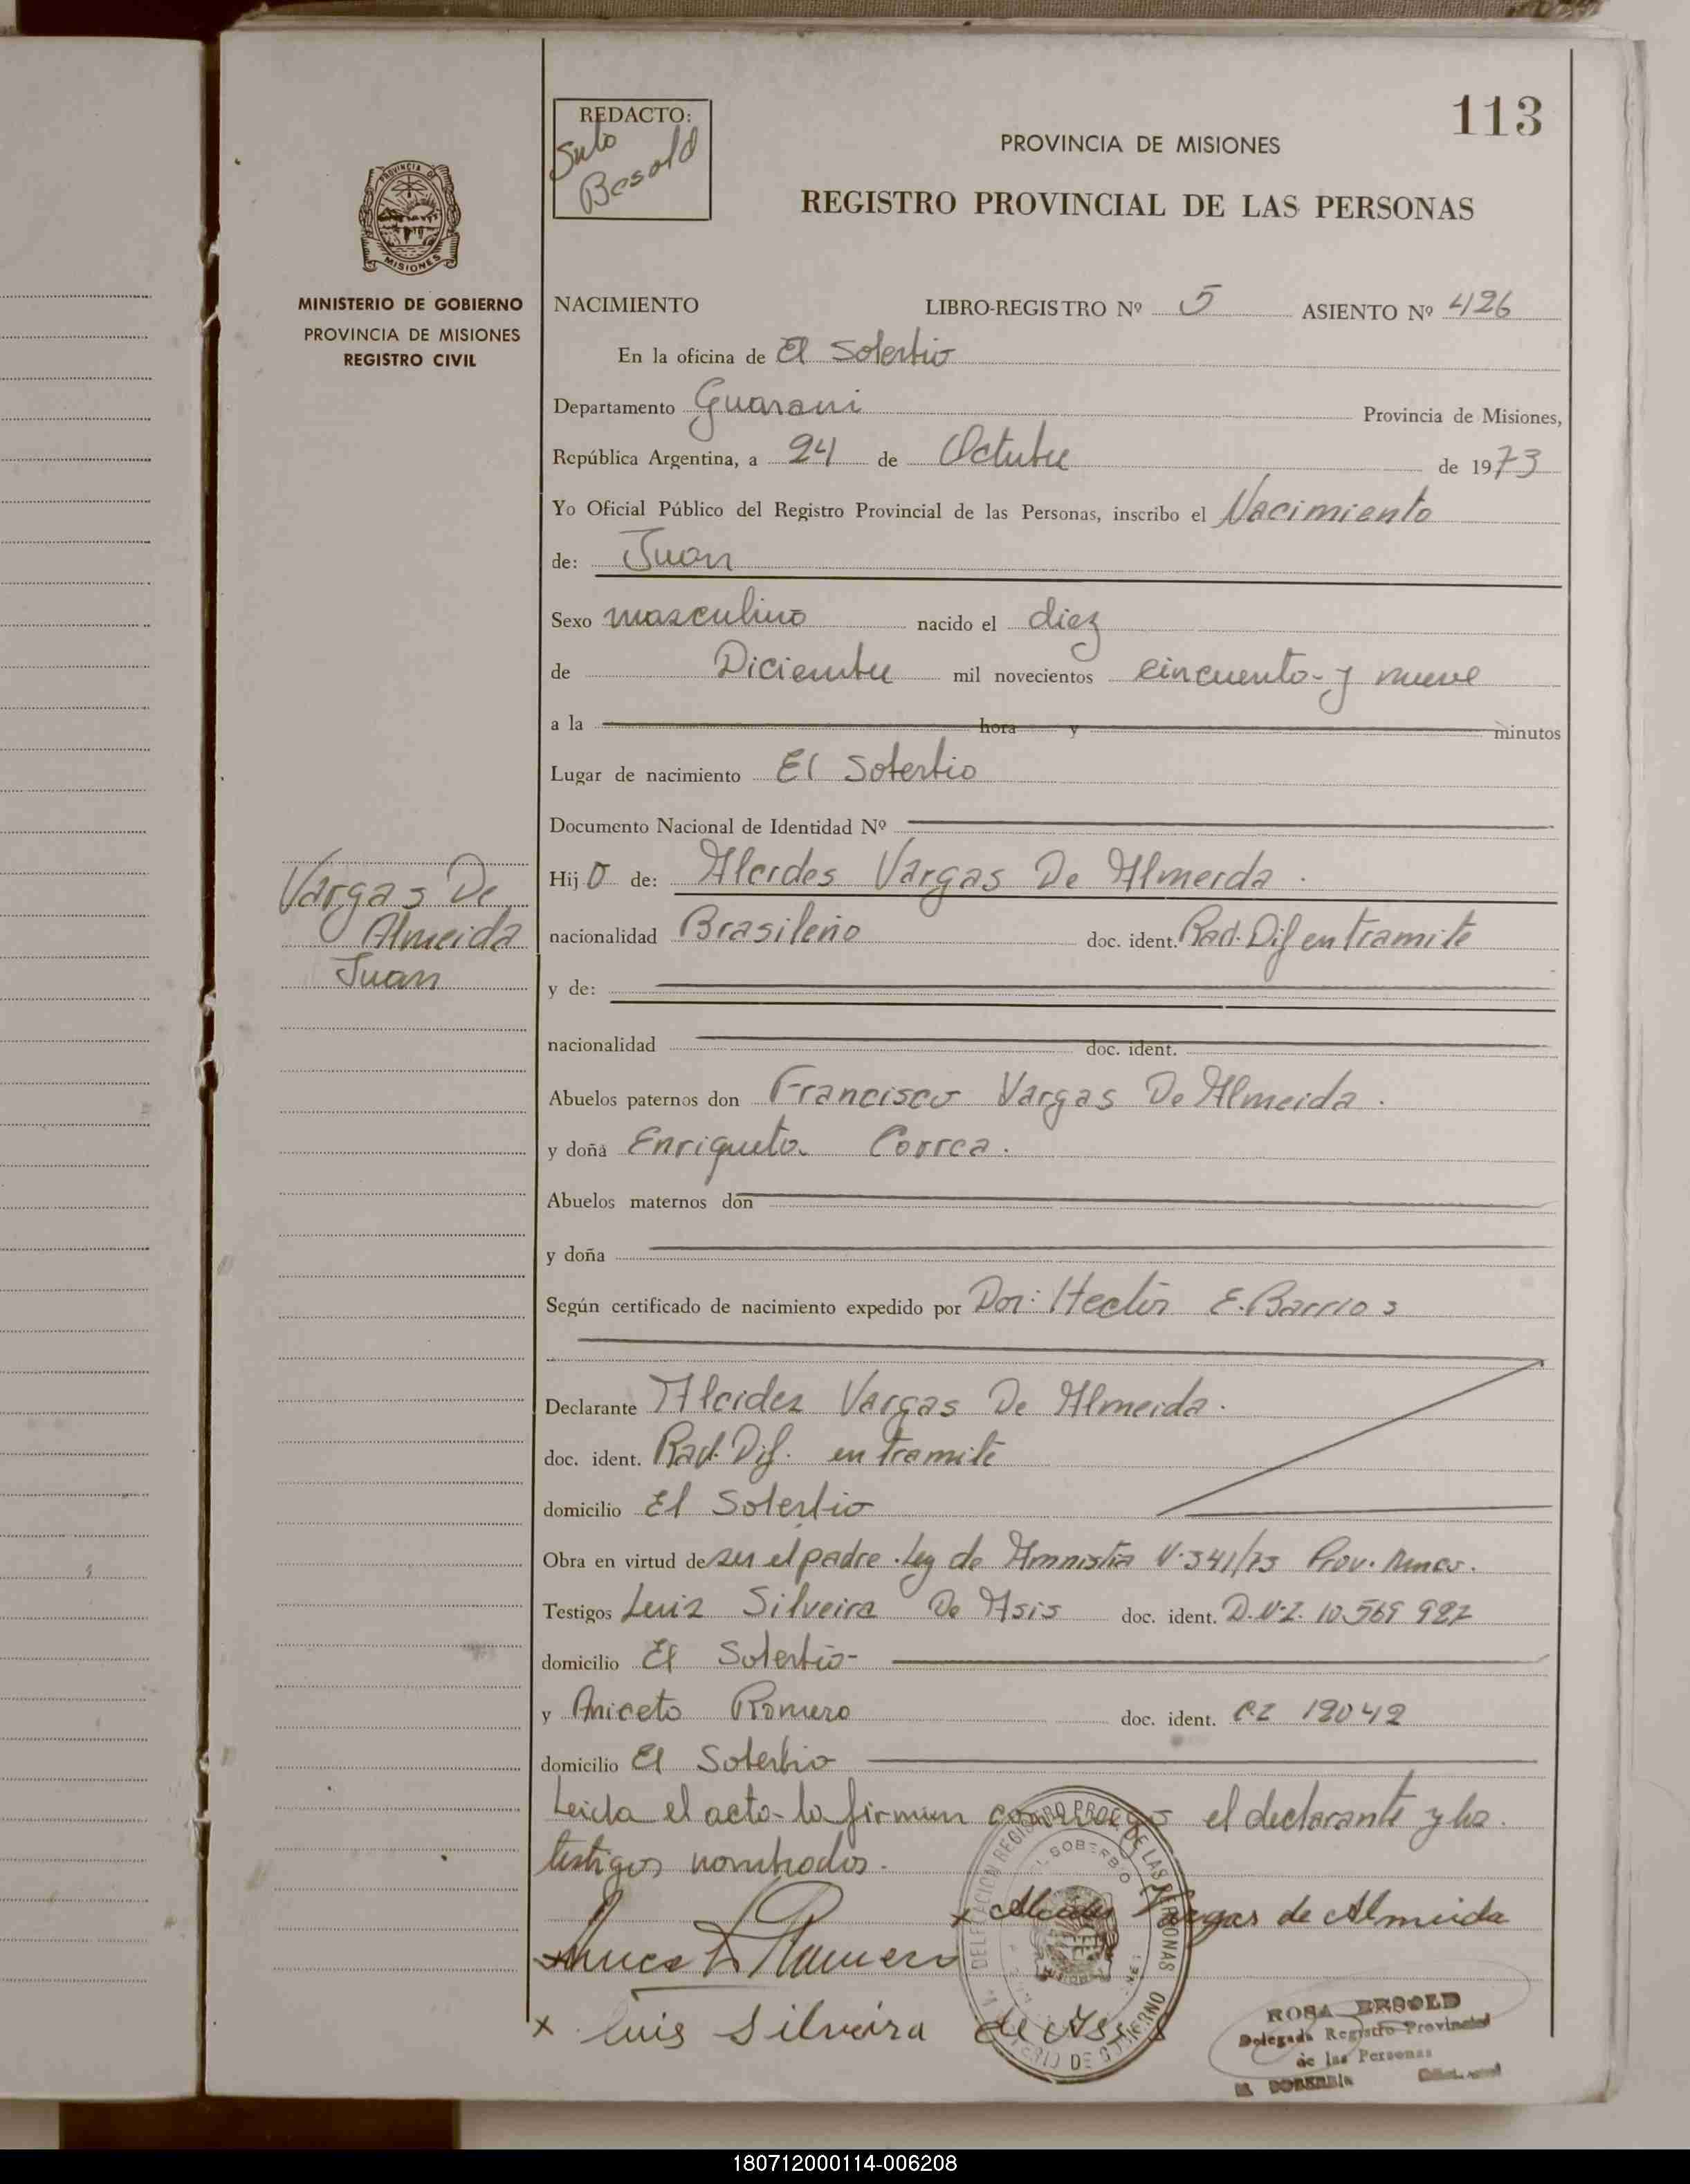 113
REDACTO:
Besold
PROVINCIA DE MISIONES
REGISTRO PROVINCIAL DE LAS PERSONAS
PROVINCIA DE
MISIONES
MINISTERIO DE GOBIERNO
PROVINCIA DE MISIONES
REGISTRO CIVIL
NACIMIENTO LIBRO-REGISTRO Nº 5 ASIENTO Nº 426
En la oficina de El Soberbio
Departamento Guarani Provincia de Misiones,
República Argentina, a 24 de Octubre de 1973
Yo Oficial Público del Registro Provincial de las Personas, inscribo el Nacimiento
de: Juan
Sexo masculino nacido el diez
de Diciembre mil novecientos cincuenta y nueve
a la hora y minutos
Lugar de nacimiento El Soberbio
Documento Nacional de Identidad Nº
Hijo de: Alcides Vargas De Almeida.
Vargas De
Almeida
Juan
nacionalidad Brasileño doc. ident. Rad. Dif en tramite
y de:
nacionalidad doc. ident.
Abuelos paternos don Francisco Vargas De Almeida.
y doña Enriqueta Correa.
Abuelos maternos don
y doña
Según certificado de nacimiento expedido por Dor: Hector E. Barrios
Declarante Alcides Vargas De Almeida.
doc. ident. Rad. Dif. en tramite
domicilio El Soberbio
Obra en virtud de ser el padre. Ley de Amnistia Nº 341/73 Prov. Mnes.
Testigos Luis Silveira De Asis doc. ident. D.N.I. 10.569 987
domicilio El Soberbio-
y Aniceto Romero doc. ident. C.I. 12042
domicilio El Soberbio
Leida el acta la firman conmigo el declarante y los
testigos nombrados.
x Alcides Vargas de Almeida
x Luis Silveira de Assis
DELEGACION REGISTRO PROV. DE LAS PERSONAS
EL SOBERBIO
MINISTERIO DE GOBIERNO
ROSA BESOLD
Delegada Registro Provincial
de las Personas
EL SOBERBIO
180712000114-006208